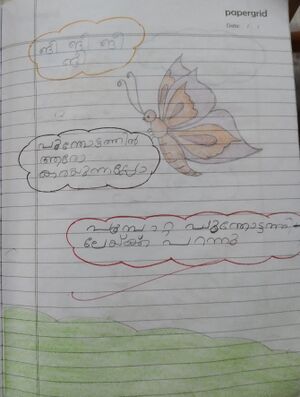 papergrid
Date: / /
ങീ ങീ ങീ
ങീ
പൂന്തോട്ടത്തിൽ
ആരോ
കരയുന്നല്ലോ
പൂമ്പാറ്റ പൂന്തോട്ടത്തി
ലേയ്ക്ക് പറന്നു